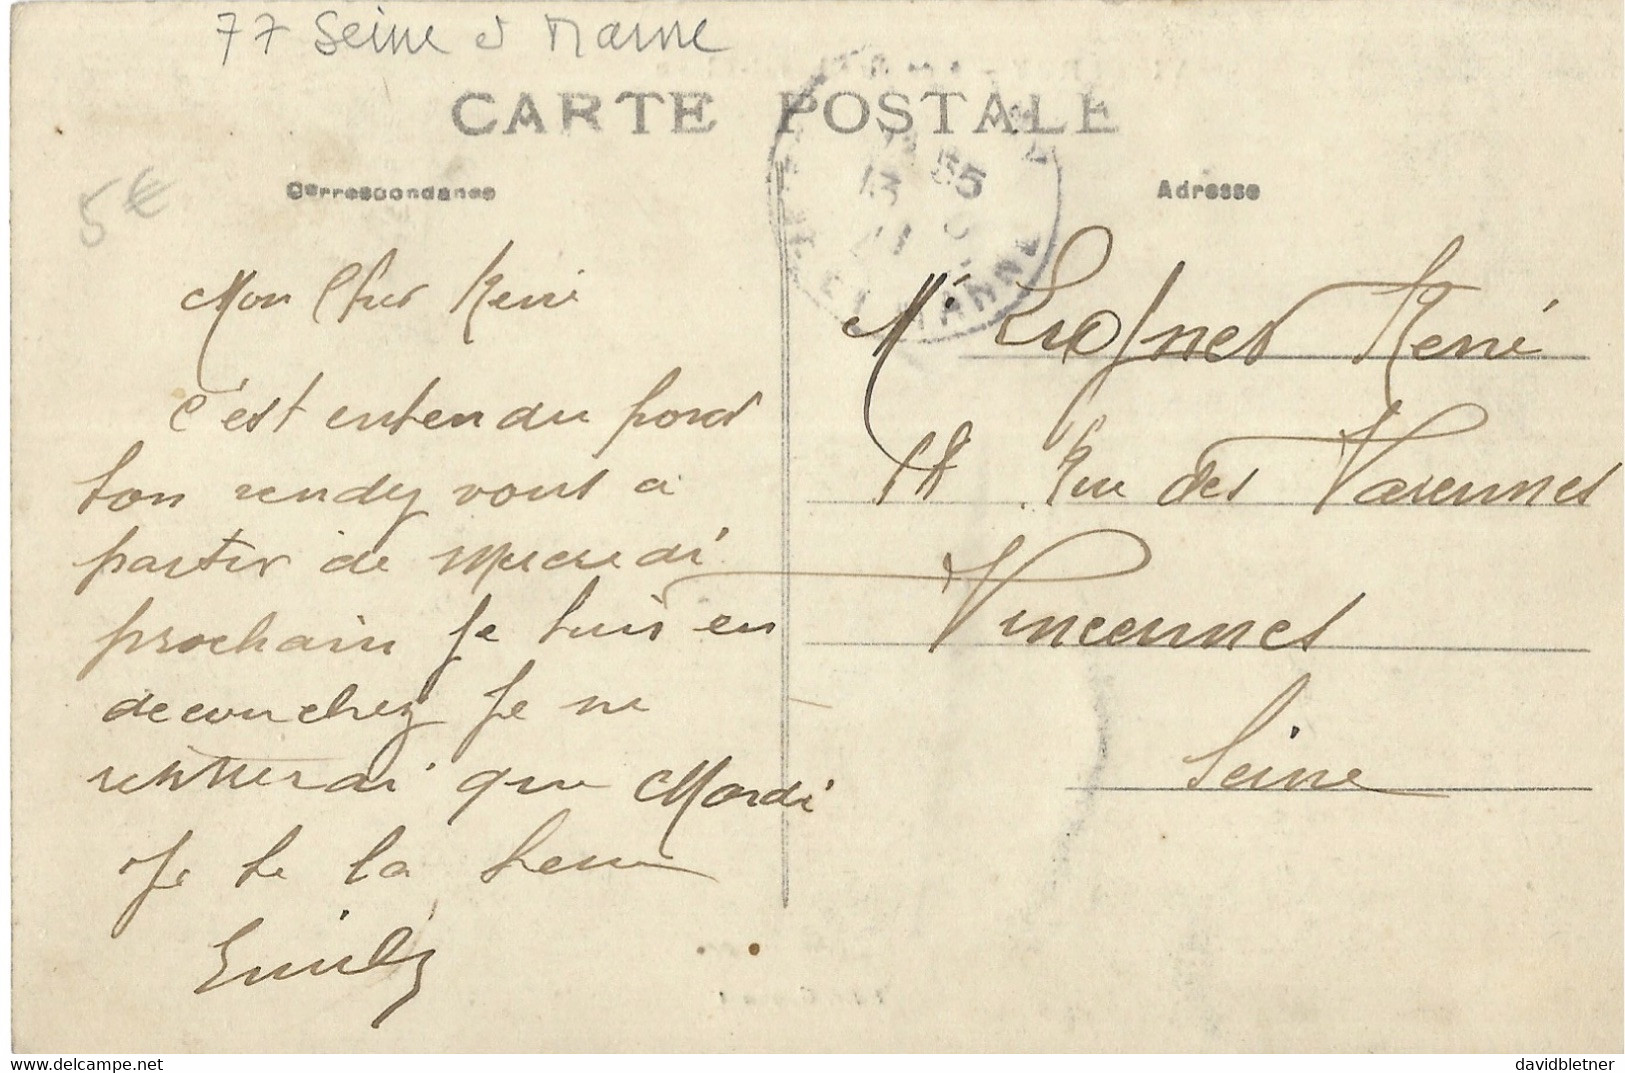 77 Seine et Marne
CARTE POSTALE
5€
Correspondance
Adresse
13 35
ET MARNE
Mon Cher René
c'est entendu pour
ton rendez vous a
partir de Mercredi
prochain Je suis en
decouchez Je ne
rentrerai que Mardi
Je te la serre
Emile
Mr René
18 Rue des Varennes
Vincennes
Seine
delcampe.net
davidbletner